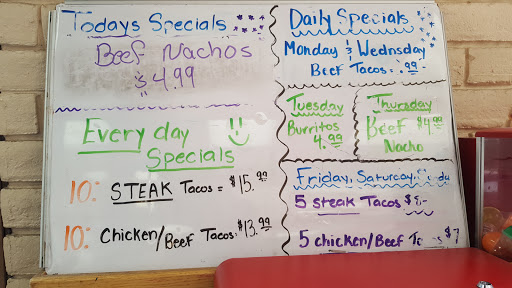 Todays Specials
Beef Nachos
$4.99
Every day
Specials
10: STEAK Tacos = $15.99
10: Chicken/Beef Tacos: $13.99
Daily Specials
Monday & Wednsday
Beef Tacos: .99
Tuesday
Burritos
4.99
Thursday
Beef $4.99
Nacho
Friday, Saturday,
5 steak Tacos $
5 chicken/Beef $7